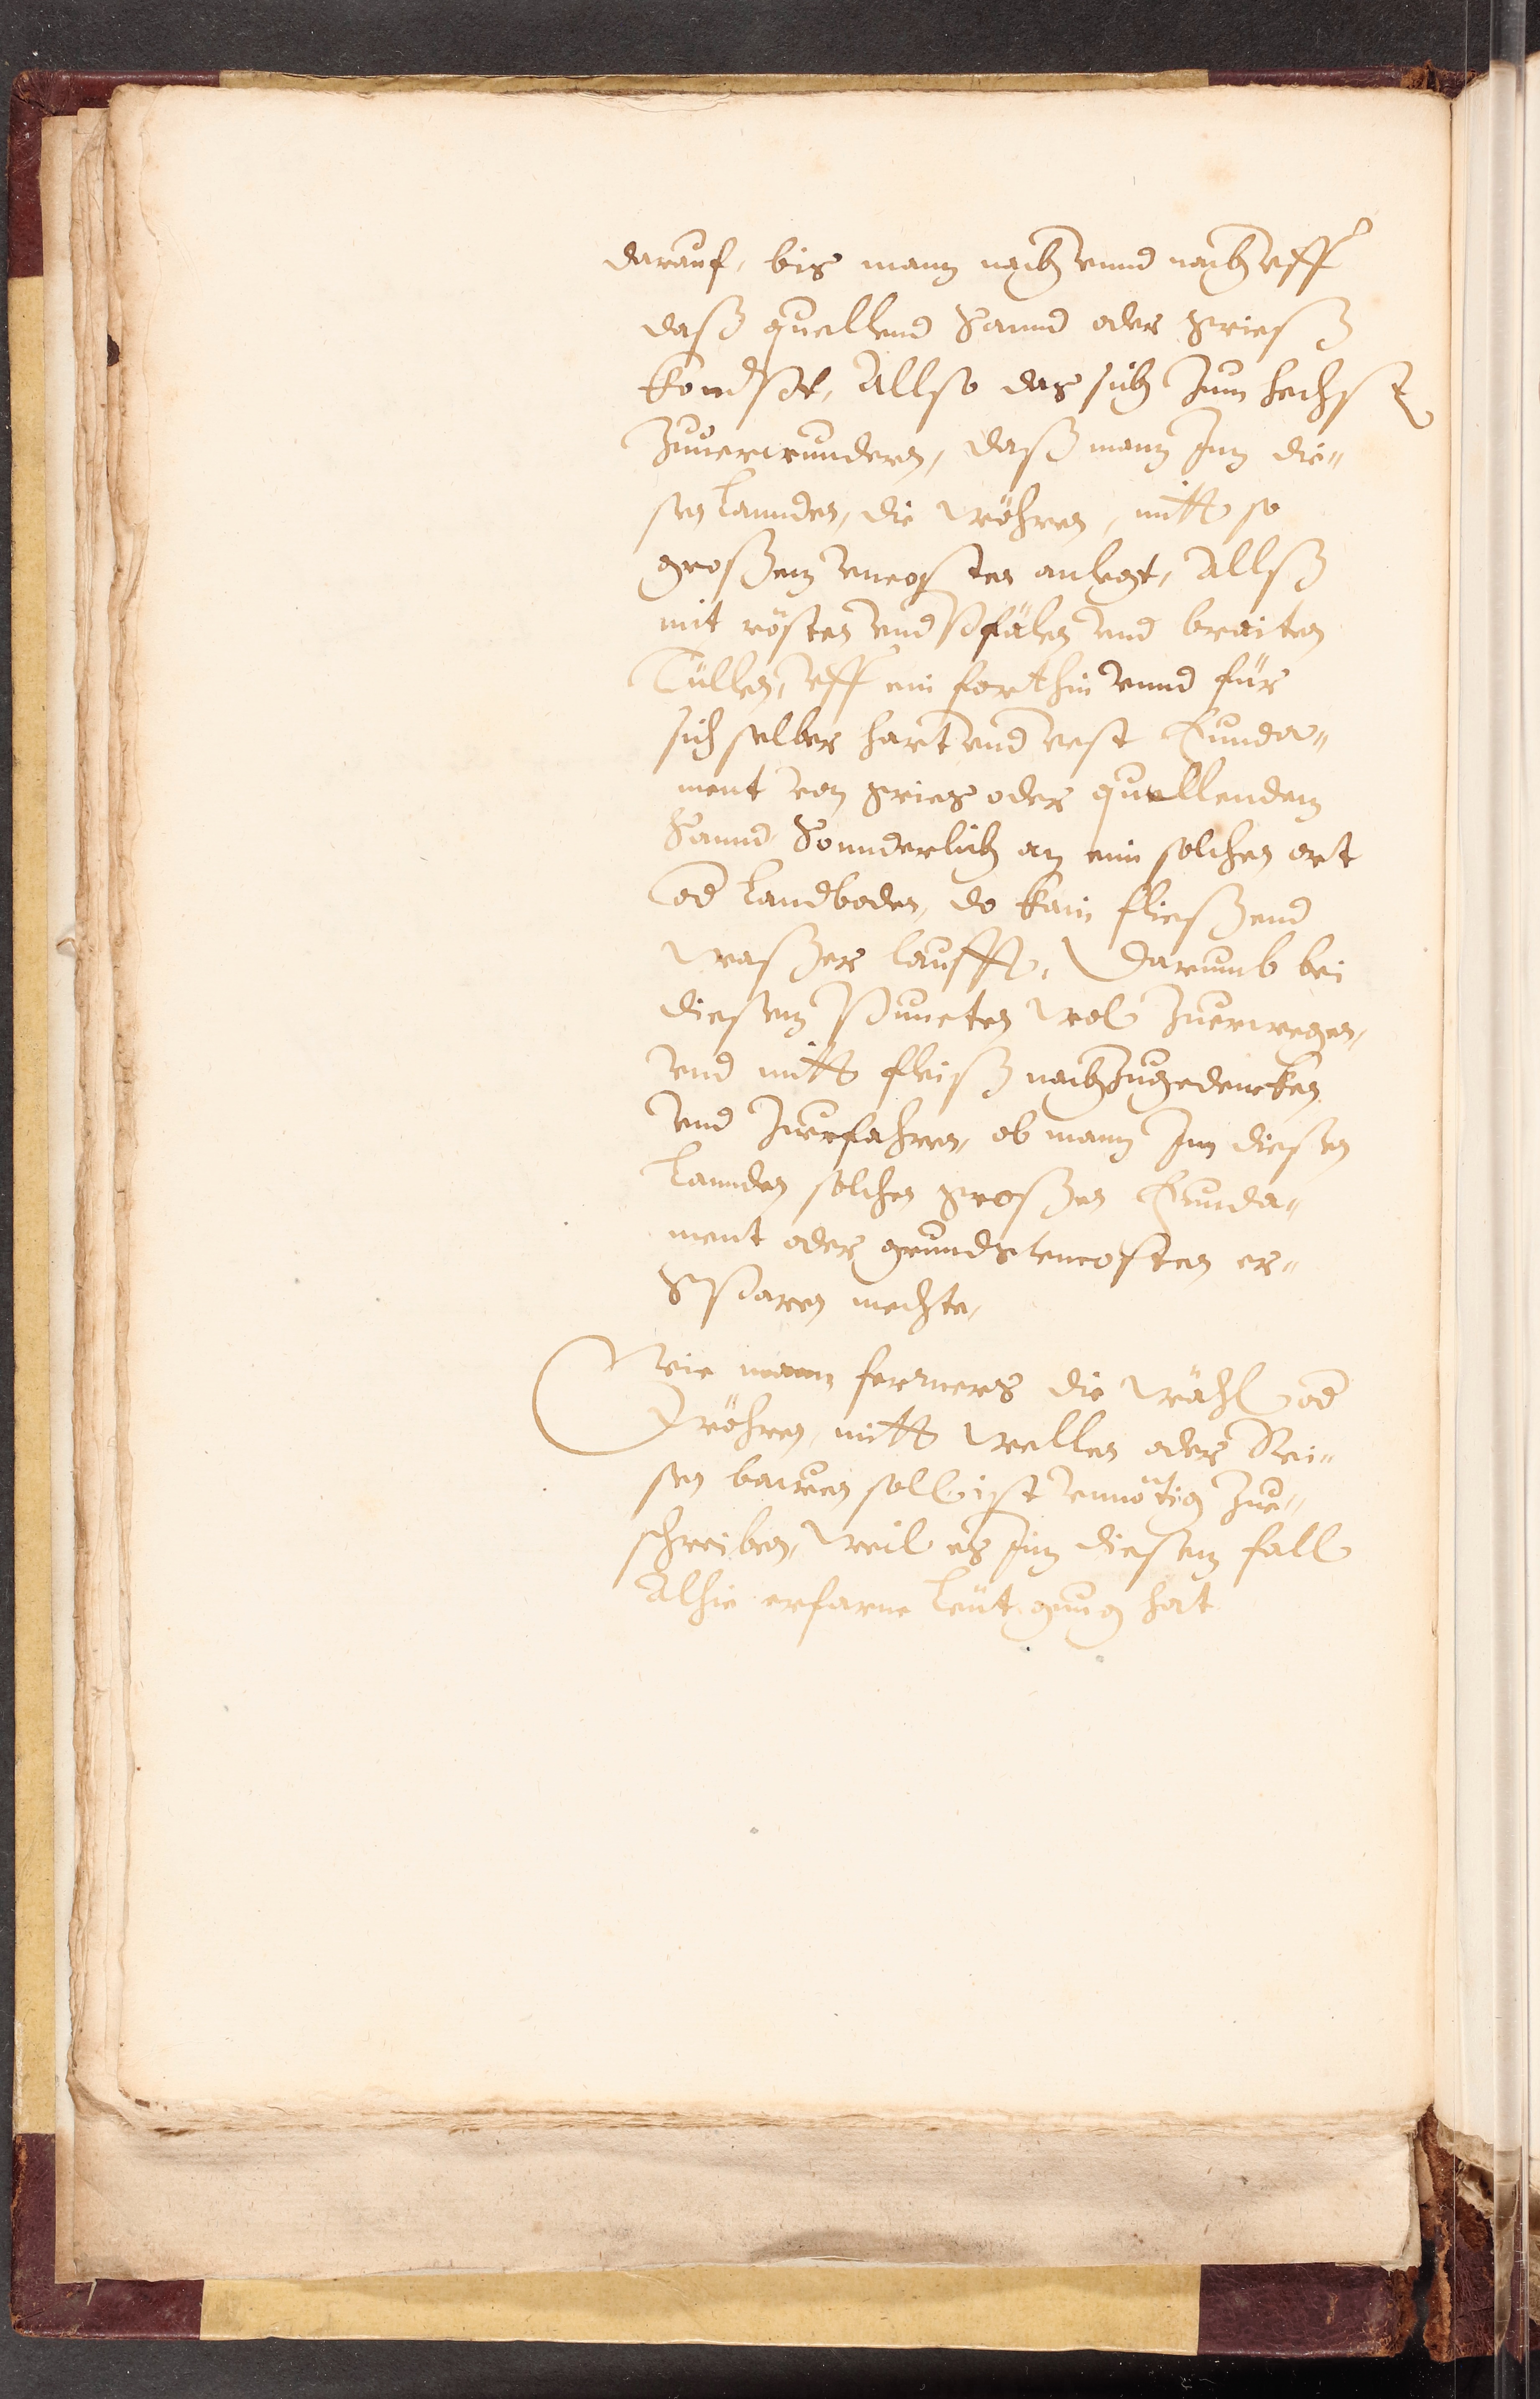 darauf, bis mann nach vnnd nach vff
daß quellend Sannd oder Grieß
kombst, Allso das sich zum hechst
zuuerwundern, daß mann Inn die„
sen lannden, die wöhren, mitt so
großem vncosten anlegt, Allß
mit rösten vnd Pfälen vnd breiten
Tüllen, vff ein forthin vnnd für
sich selber hart vnd vest Funda„
ment von Gries oder quellendem
Sannd Sonnderlich an eim solchen ort
od Landboden, do kain fließend
waßer laufft, Darumb bei
diesem Puncten wol zuerwegen,
vnd mitt fleiß nachzugedencken
vnd zuerfahren, ob mann Inn diesen
lannden solchen großen Funda„
ment oder grundts vncosten er„
Sparen mechte,
Wie mann ferners die wähl od
wöhren, mitt wellen oder Rei„
sen bawen soll ist vnnötig zue„
schreiben, weil es Inn diesem fall
Alhie erfarne leüt gnug hat